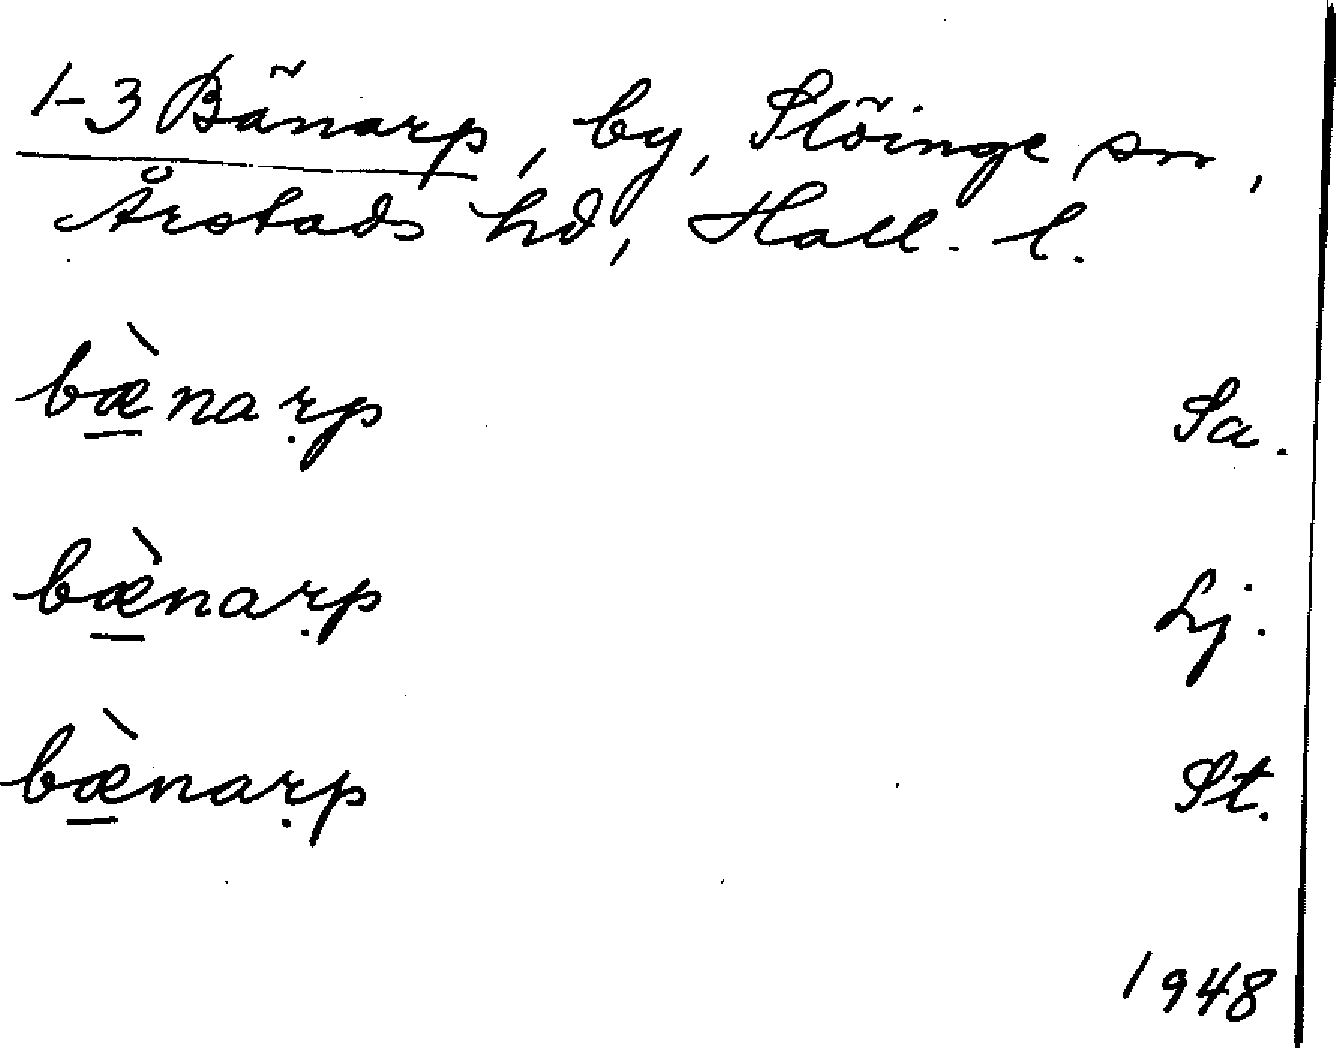 1-3 Bänarp, by, Slöinge sn,
Årstads hd, Hall. l.
bæ̠̀narp Sa.
bæ̠̀narp Lj.
bæ̠̀narp St.
1948